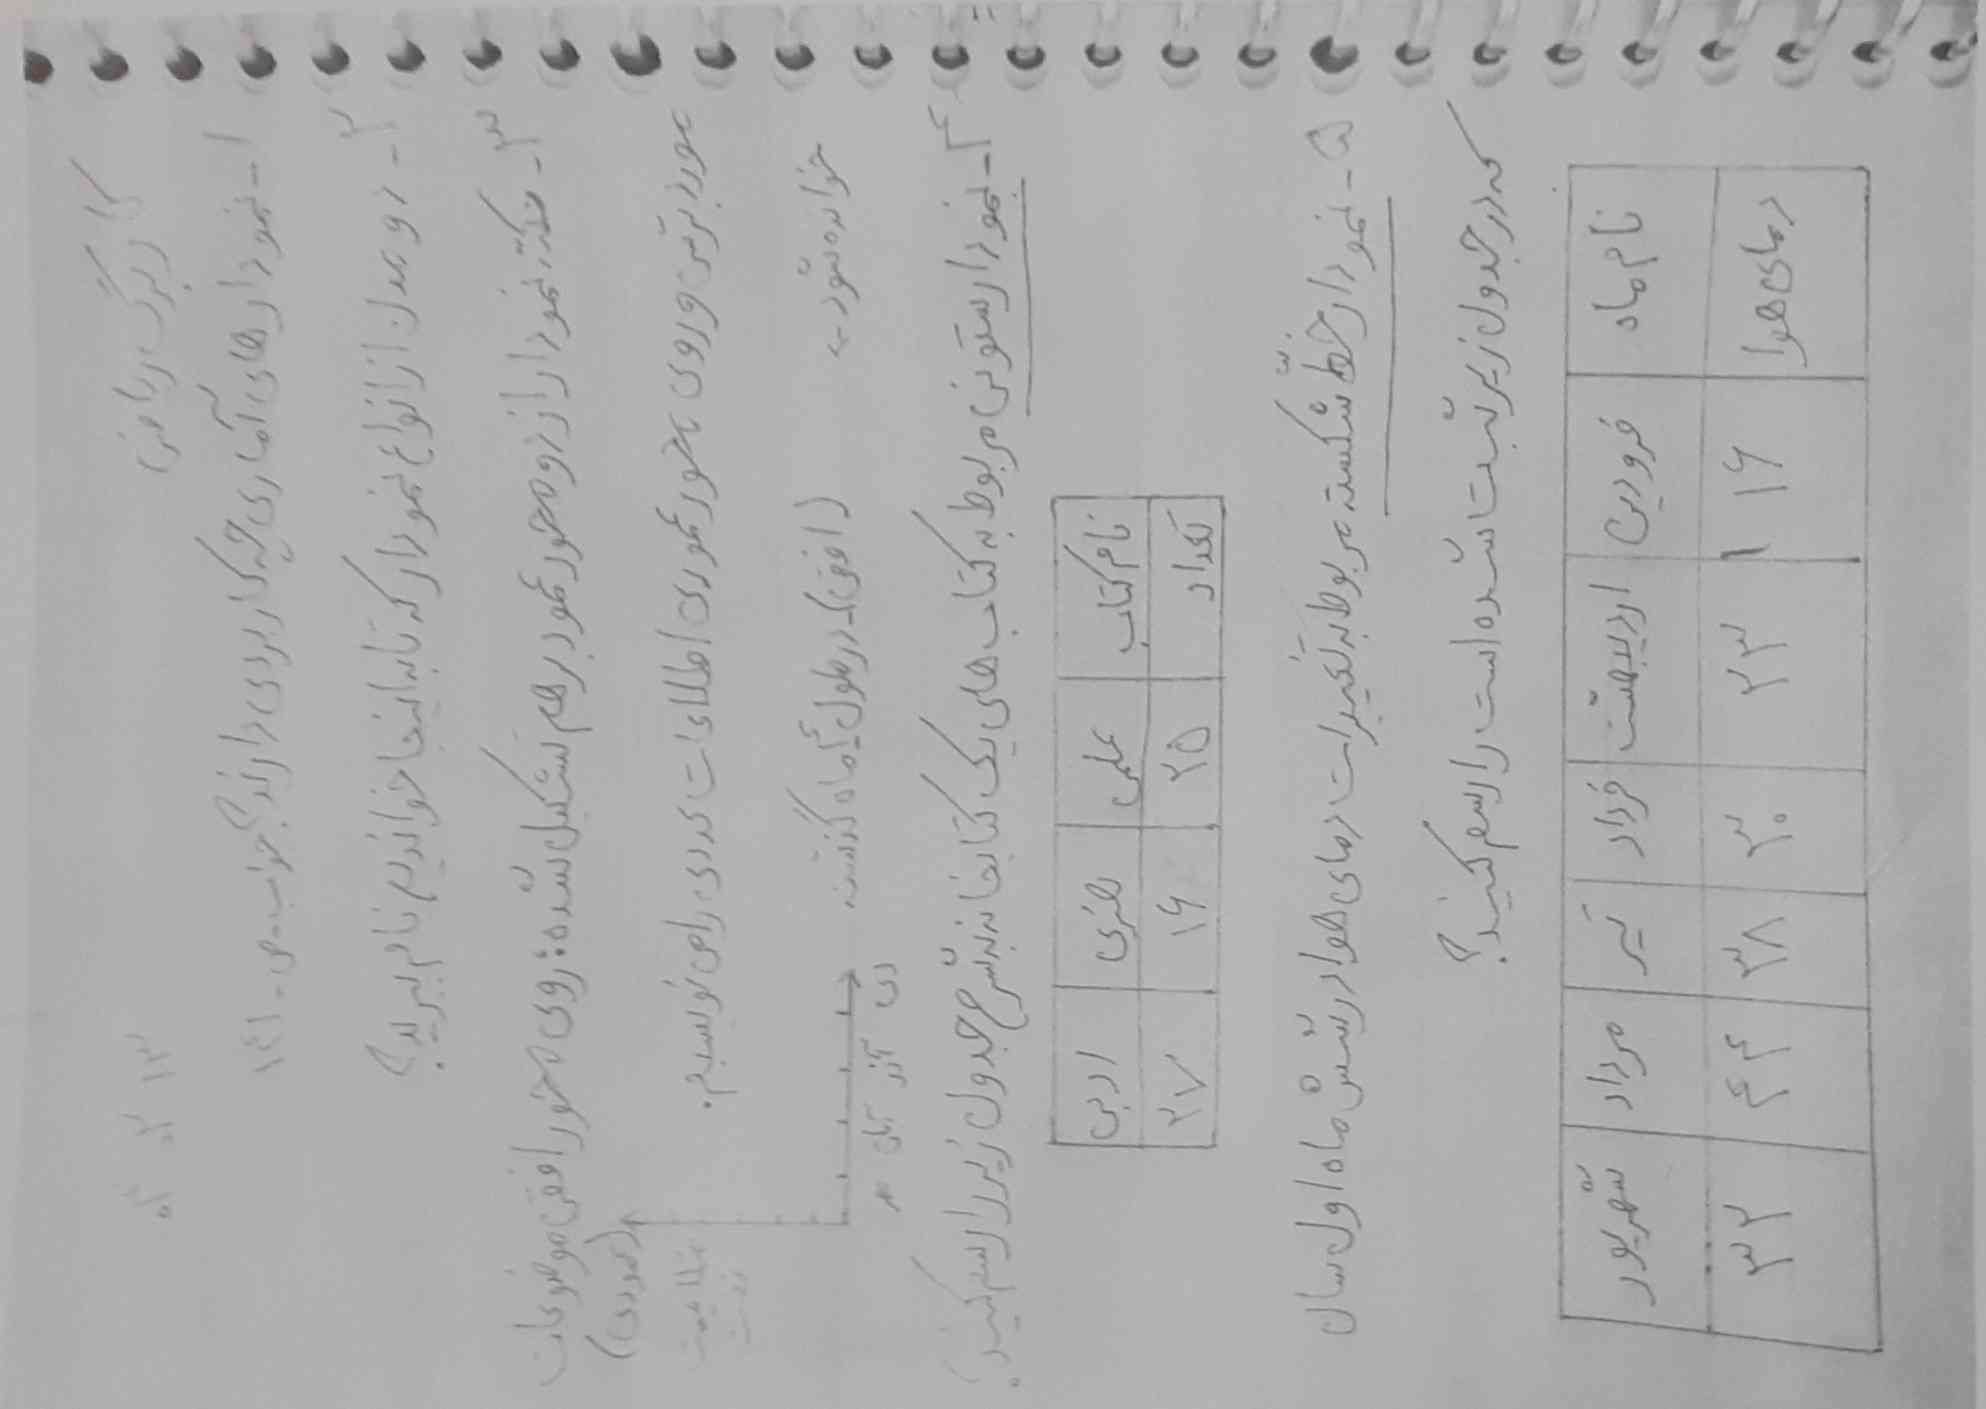 کاربرگ ریاضی
۱- نمودارهای آماری چه کاربردی دارند؟ جواب ص - ۱۴۱
۲- دو مدل از انواع نمودار که تا به اینجا خواندیم نام ببرید؟
۳- نکته: نمودار از دو محور عمود بر هم تشکیل شده: روی محور افقی موضوعات
مورد بررسی و روی محور عمودی اطلاعات عددی را می نویسیم.
(عمودی)
خوانده شود ←
(افقی) - در طول ماه گذشته
آبان آذر دی
۴- نمودار ستونی مربوط به کتاب های یک کتابخانه به شرح جدول زیر را رسم کنید؟
نام کتاب علمی هنری ادبی
تعداد ۲۵ ۱۶ ۲۷
۵- نمودار خط شکسته مربوط به تغییرات دمای هوا در شش ماه اول سال
که در جدول زیر ثبت شده است را رسم کنید؟
نام ماه فروردین اردیبهشت خرداد تیر مرداد شهریور
دمای هوا ۱۶ ۲۳ ۳۰ ۳۸ ۴۲ ۳۲